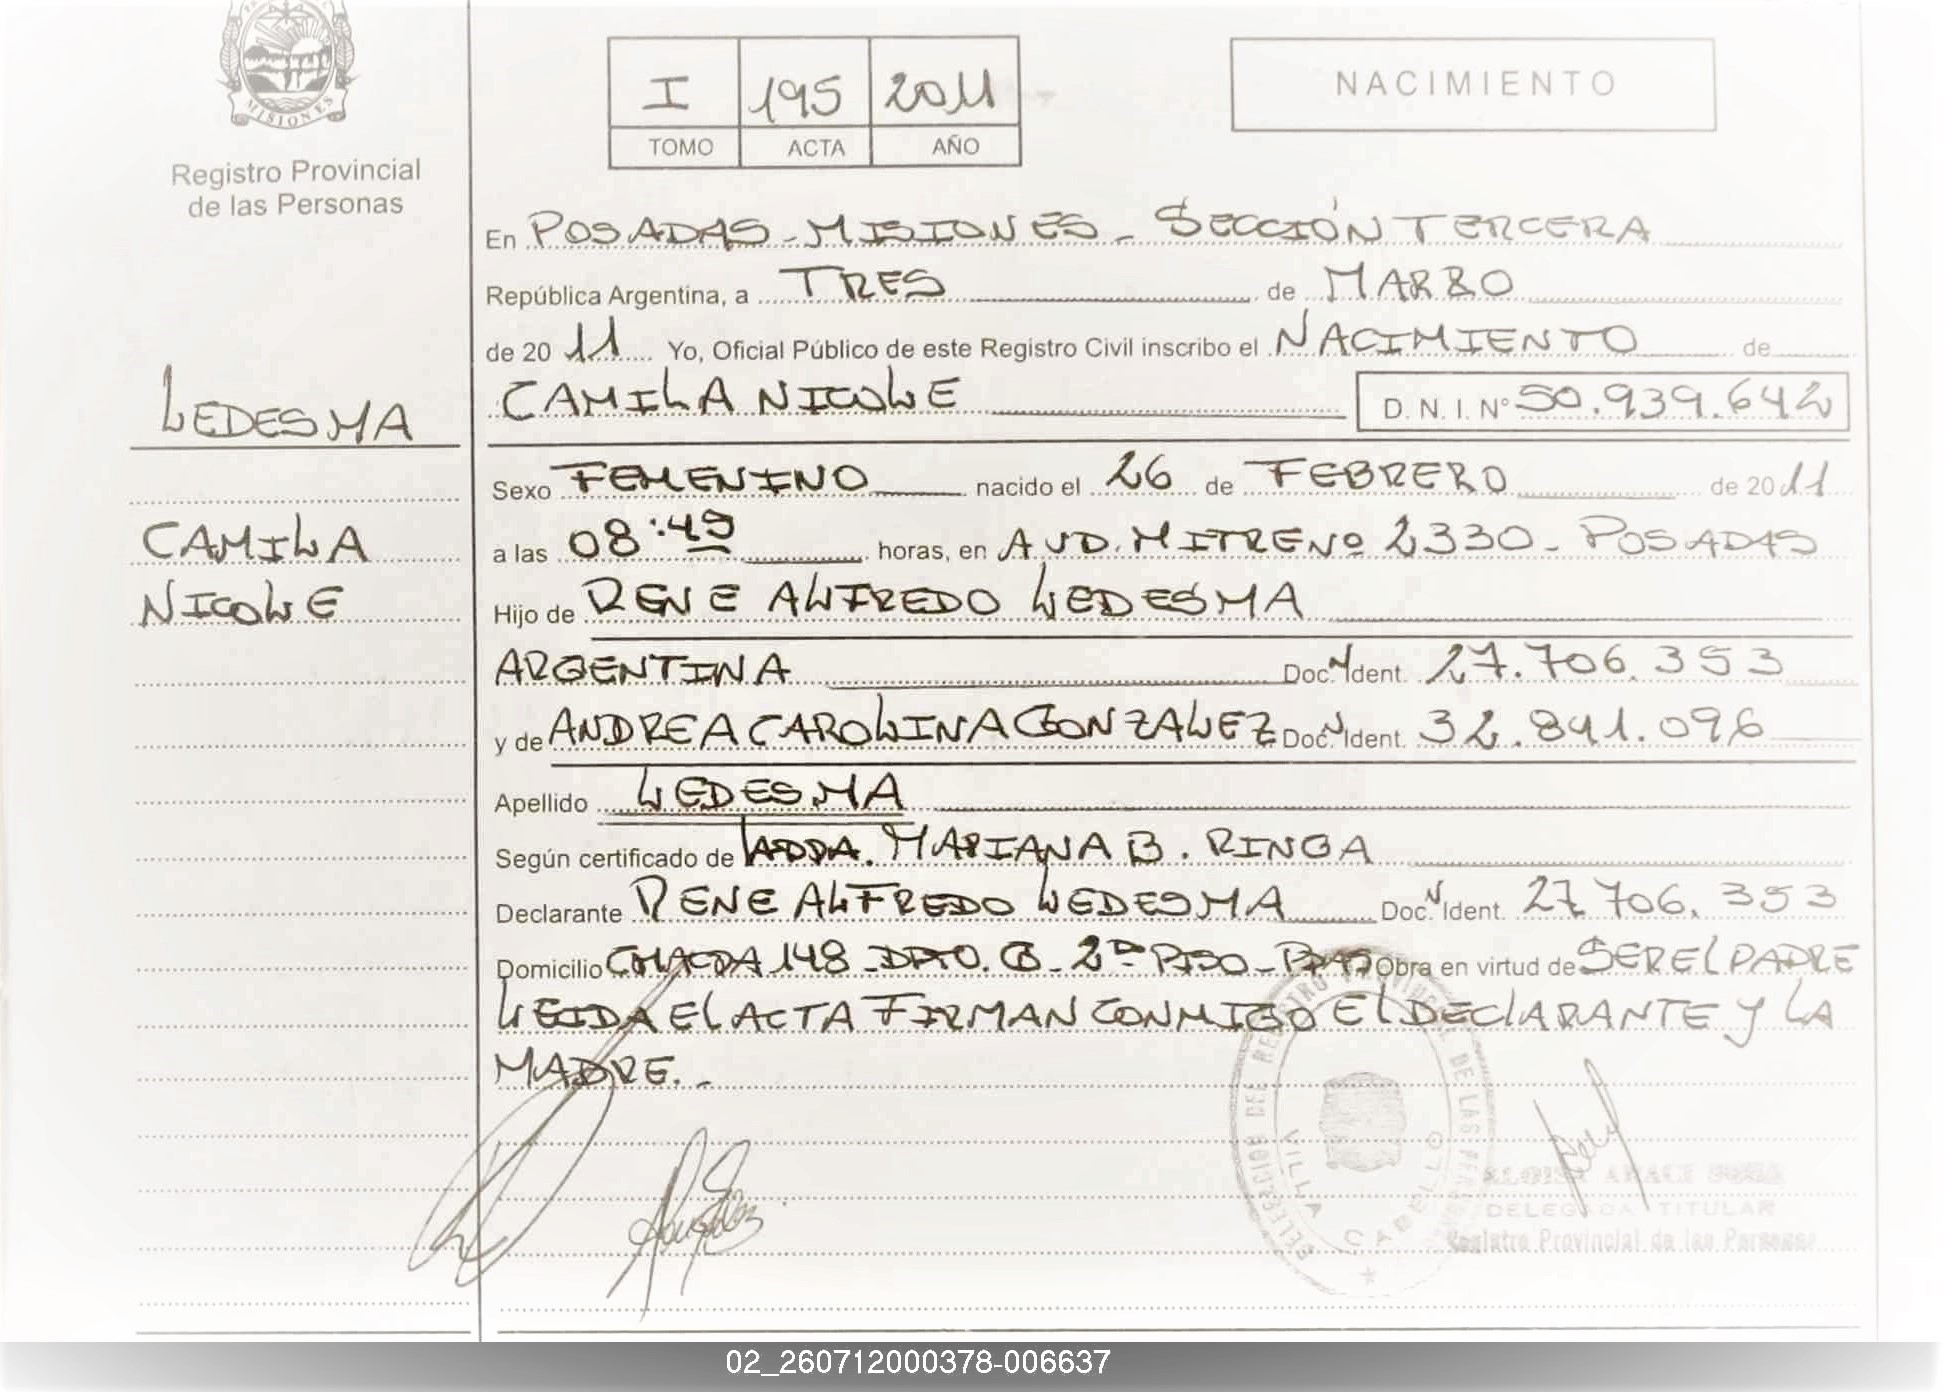 MISIONES
Registro Provincial
de las Personas
I 195 2011
TOMO ACTA AÑO
NACIMIENTO
En POSADAS - MISIONES - SECCIÓN TERCERA
República Argentina, a TRES de MARZO
de 2011 Yo, Oficial Público de este Registro Civil inscribo el NACIMIENTO de
CAMILA NICOLE D. N. I. Nº 50.939.642
LEDESMA
CAMILA
NICOLE
Sexo FEMENINO nacido el 26 de FEBRERO de 2011
a las 08:49 horas, en AVD. MITRE Nº 2330 - POSADAS
Hijo de RENE ALFREDO LEDESMA
ARGENTINA Doc. N Ident. 27.706.353
y de ANDREA CAROLINA GONZALEZ Doc. N Ident. 32.841.096
Apellido LEDESMA
Según certificado de MARIANA B. RINGA
Declarante RENE ALFREDO LEDESMA Doc. N Ident. 27.706.353
Domicilio 148 - DPTO. - 2º PISO - Obra en virtud de SER EL PADRE
LEIDA EL ACTA FIRMAN CONMIGO EL DECLARANTE Y LA
MADRE. -
DELEGACION DEL REGISTRO PROVINCIAL DE LAS PERSONAS
VILLA CABELLO
DELEGADA TITULAR
Registro Provincial de las Personas
02_260712000378-006637